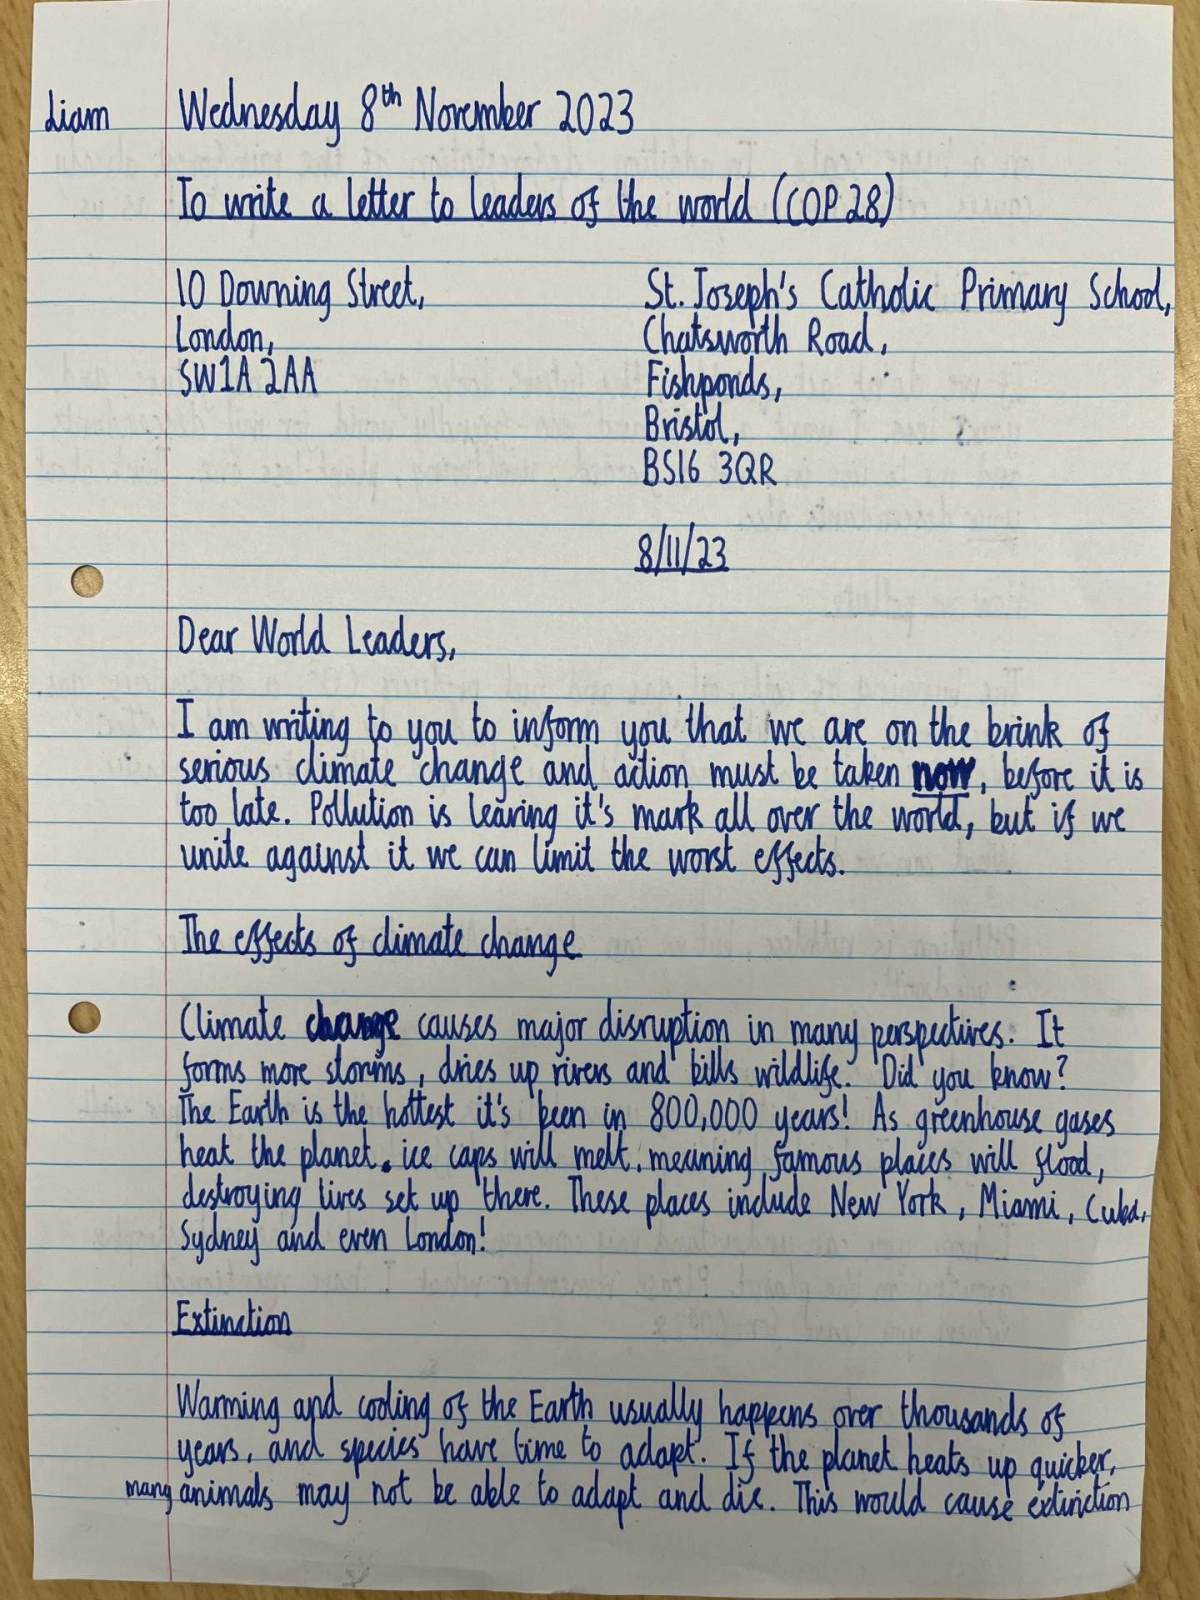 Liam
Wednesday 8th November 2023
To write a letter to leaders of the world (COP 28)
10 Downing Street,
London,
SW1A 2AA
St. Joseph's Catholic Primary School,
Chatsworth Road,
Fishponds,
Bristol,
BS16 3QR
8/11/23
Dear World Leaders,
I am writing to you to inform you that we are on the brink of
serious climate change and action must be taken now, before it is
too late. Pollution is leaving it's mark all over the world, but if we
unite against it we can limit the worst effects.
The effects of climate change
Climate change causes major disruption in many perspectives. It
forms more storms, dries up rivers and kills wildlife. Did you know?
The Earth is the hottest it's been in 800,000 years! As greenhouse gases
heat the planet, ice caps will melt, meaning famous places will flood,
destroying lives set up there. These places include New York, Miami, Cuba,
Sydney and even London!
Extinction
Warming and cooling of the Earth usually happens over thousands of
years, and species have time to adapt. If the planet heats up quicker,
many animals may not be able to adapt and die. This would cause extinction